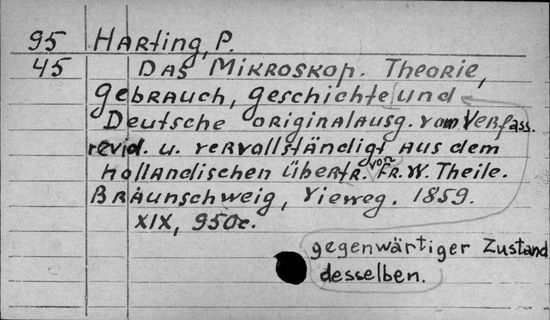 95 Harting, P.
45 Das Mikroskop. Theorie,
Gebrauch, Geschichte und
Deutsche Originalausg. vom Verfass.
revid. u. vervollständigt aus dem
Holländischen übertr. von Fr. W. Theile.
Braunschweig, Vieweg. 1859.
XIX, 950c.
gegenwärtiger Zustand
desselben.